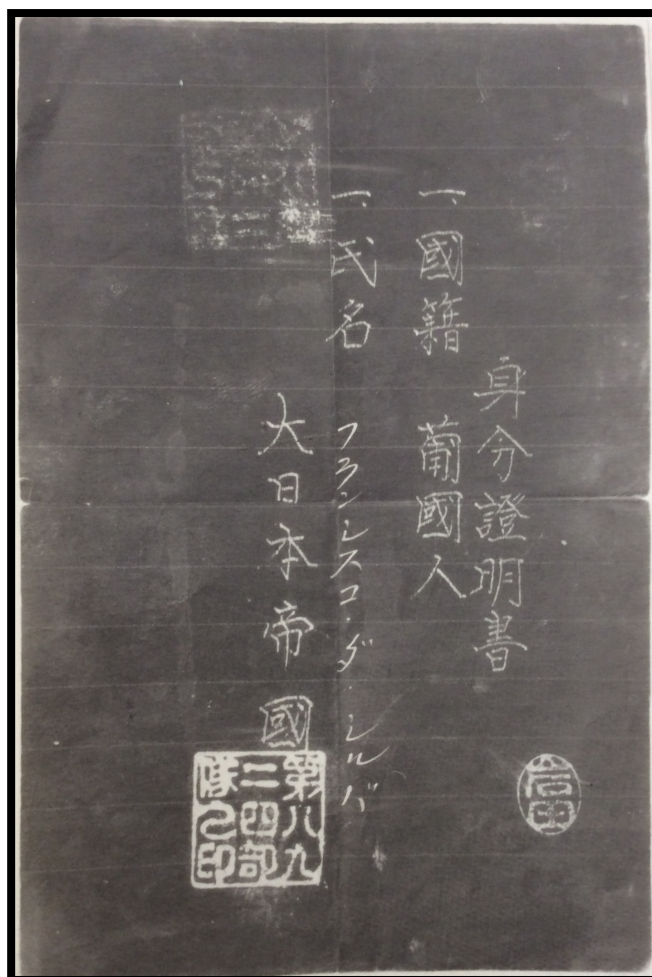 身分證明書
一、國籍 葡國人
一、氏名 フランシスコ・ダ・シルバ
大日本帝國
第八九
二四部
隊之印